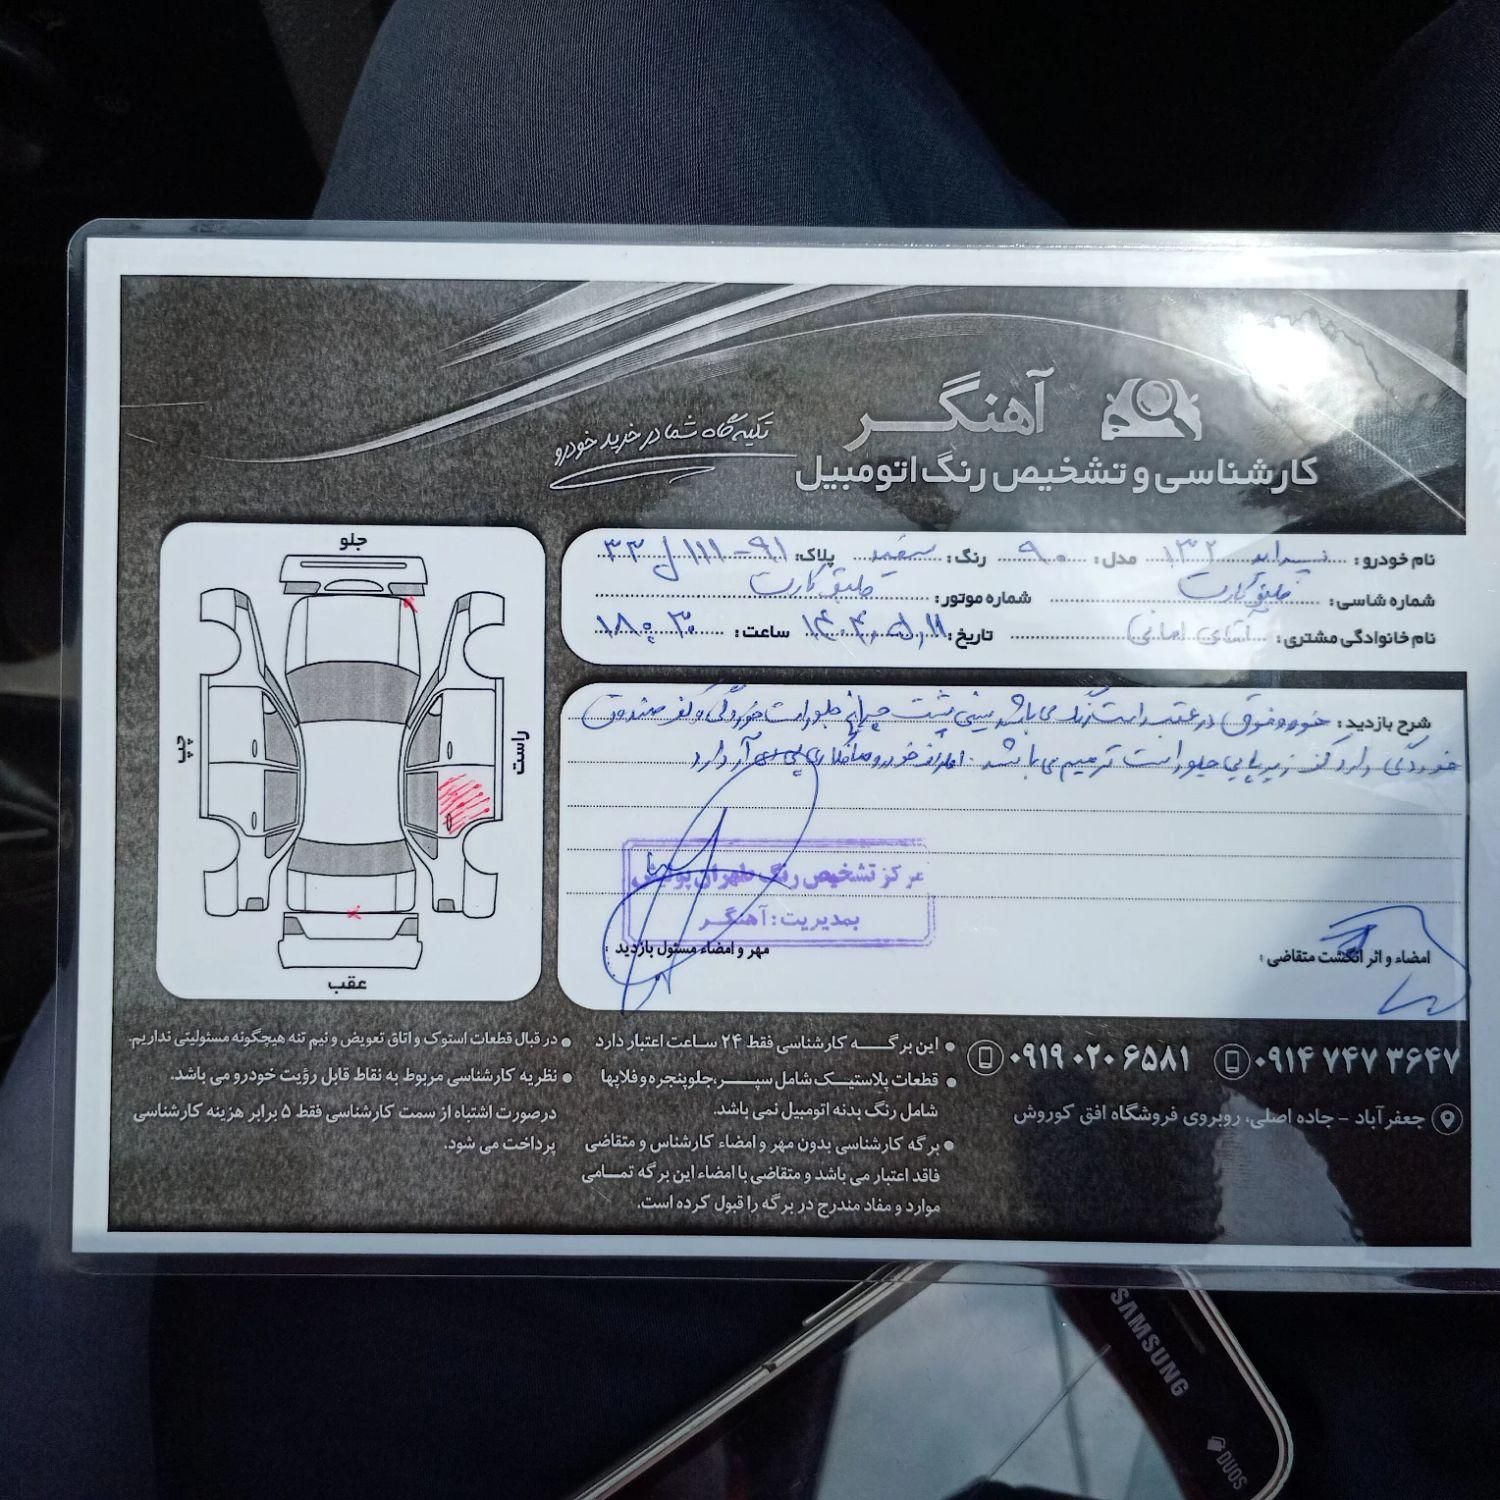 آهنگر
کارشناسی و تشخیص رنگ اتومبیل
تکیه گاه شما در خرید خودرو
نام خودرو: پراید ۱۳۲ مدل: ۹۰ رنگ: سفید پلاک: ۹۱-۱۱۱ ل ۳۳
شماره شاسی: طبق کارت شماره موتور: طبق کارت
نام خانوادگی مشتری: آقای امانی تاریخ: ساعت: ۱۸:۳۰
شرح بازدید: خودرو فوق درب عقب راست رنگ می باشد سینی پشت چراغ جلو راست خوردگی و کف صندوق
خوردگی دارد کف زیرپایی جلو راست ترمیم می باشد. اطراف خودرو صافکاری پی دی آر دارد
مرکز تشخیص رنگ طهران
بمدیریت: آهنگر
مهر و امضاء مسئول بازدید:
امضاء و اثر انگشت متقاضی:
جلو
چپ
راست
عقب
۰۹۱۴ ۷۴۷ ۳۶۴۷
۰۹۱۹ ۰۲۰ ۶۵۸۱
جعفرآباد - جاده اصلی، روبروی فروشگاه افق کوروش
● این برگه کارشناسی فقط ۲۴ ساعت اعتبار دارد
● قطعات پلاستیک شامل سپر، جلوپنجره و فلاپها
شامل رنگ بدنه اتومبیل نمی باشد.
● برگه کارشناسی بدون مهر و امضاء کارشناس و متقاضی
فاقد اعتبار می باشد و متقاضی با امضاء این برگه تمامی
موارد و مفاد مندرج در برگه را قبول کرده است.
● در قبال قطعات استوک و اتاق تعویض و نیم تنه هیچگونه مسئولیتی نداریم.
● نظریه کارشناسی مربوط به نقاط قابل رؤیت خودرو می باشد.
درصورت اشتباه از سمت کارشناسی فقط ۵ برابر هزینه کارشناسی
پرداخت می شود.
SAMSUNG
DUOS